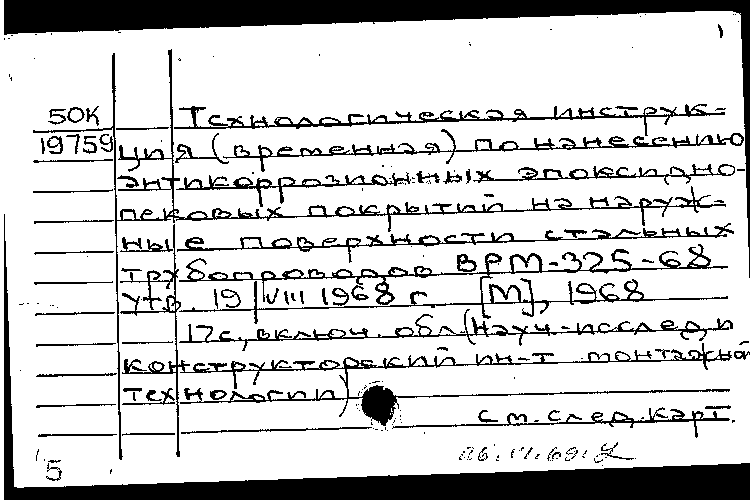 1
50К Технологическая инструк-
19759 ция (временная) по нанесению
антикоррозионных эпоксидно-
пековых покрытий на наруж-
ные поверхности стальных
трубопроводов ВРМ-325-68
Утв. 19/VIII 1968 г. [М], 1968
17с., включ. обл (Науч.-исслед. и
конструкторский ин-т монтажной
технологии)
см. след. карт.
5